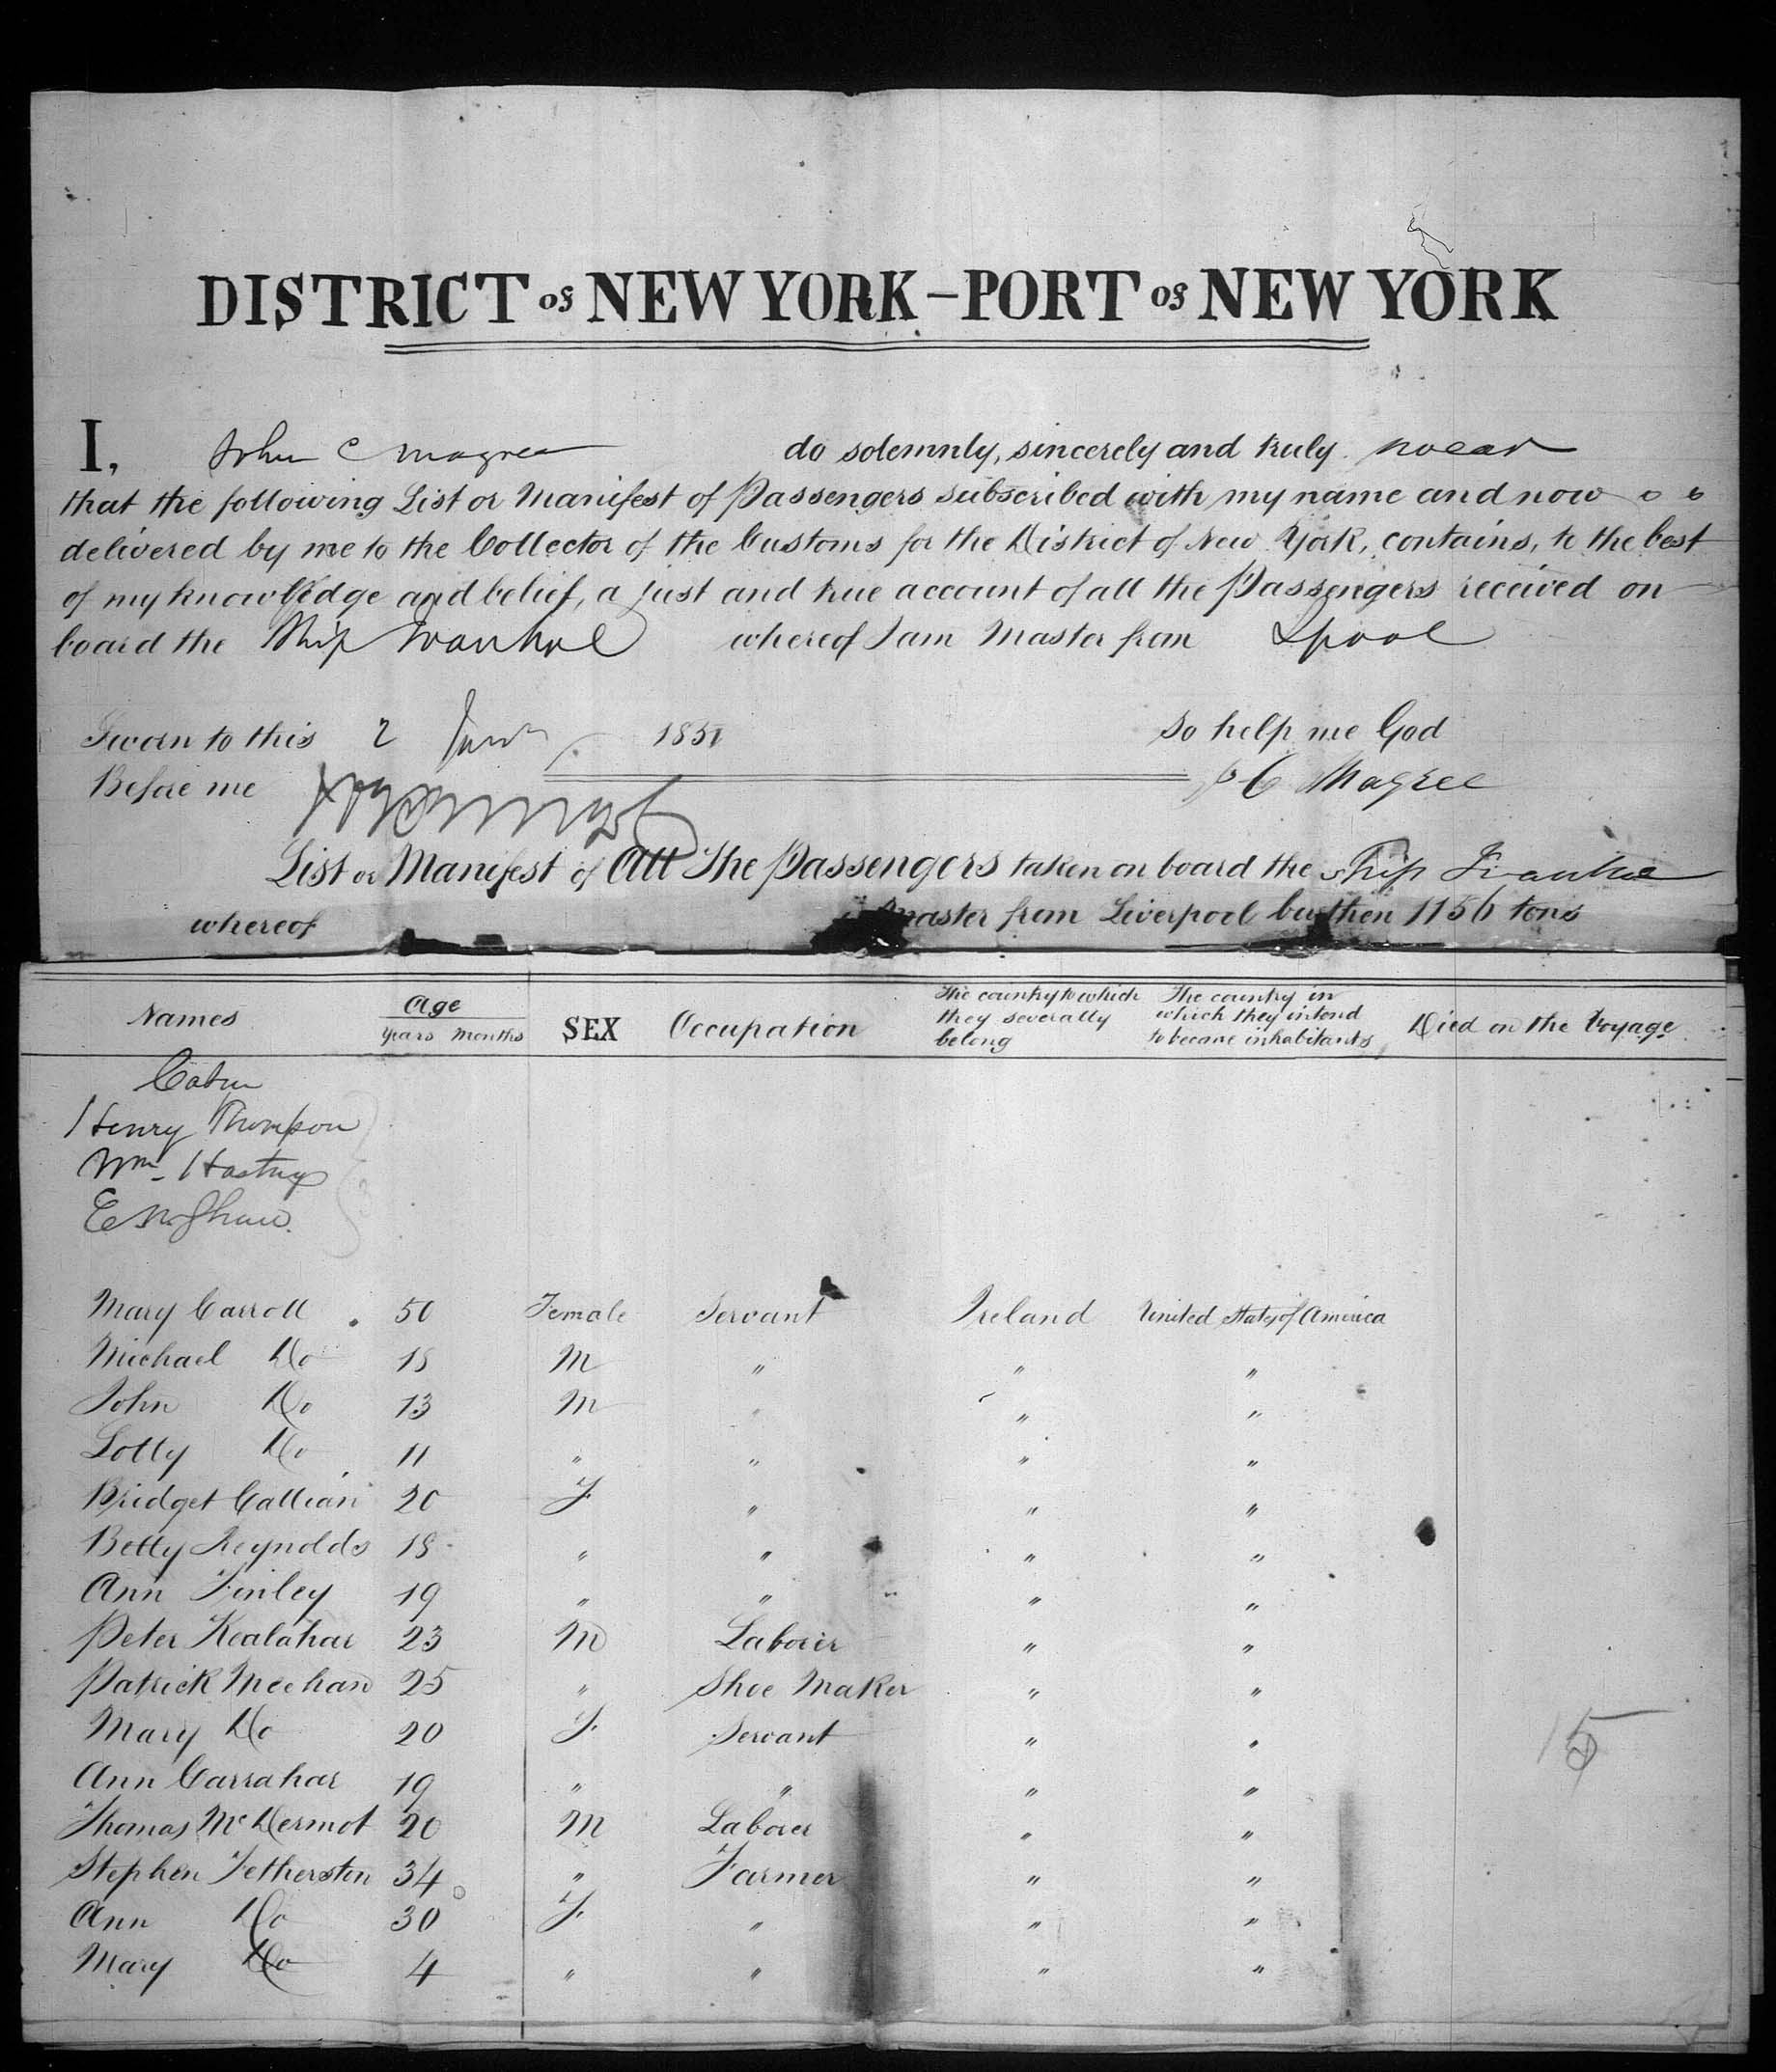 DISTRICT of NEW YORK – PORT of NEW YORK
I, John C Magree do solemnly, sincerely and truly swear
that the following List or Manifest of Passengers subscribed with my name and now
delivered by me to the Collector of the Customs for the District of New York, contains, to the best
of my knowledge and belief, a just and true account of all the Passengers received on
board the Ship Ivanhoe whereof I am Master from Lpool
Sworn to this 2 1851 so help me God
Before me J C Magree
List or Manifest of All The Passengers taken on board the Ship Ivanhoe
whereof is Master from Liverpool burthen 1156 tons
Names Age Years Months SEX Occupation The country to which they severally belong The country in which they intend to become inhabitants Died on the Voyage
Cabin
Henry Thompson
Wm. Hastings
E Shaw.
Mary Carroll 50 Female Servant Ireland United States of America
Michael Do 18 M " " "
John Do 13 M " " "
Lolly Do 11 " " " "
Bridget Callian 20 F " " "
Betty Reynolds 18 " " " "
Ann Finley 19 " " " "
Peter Kealahar 23 M Laborer " "
Patrick Meehan 25 " Shoe Maker " "
Mary Do 20 F Servant " "
Ann Carrahar 19 " " " "
Thomas McDermot 20 M Laborer " "
Stephen Fetherston 34 " Farmer " "
Ann Do 30 F " " "
Mary Do 4 " " " "
15